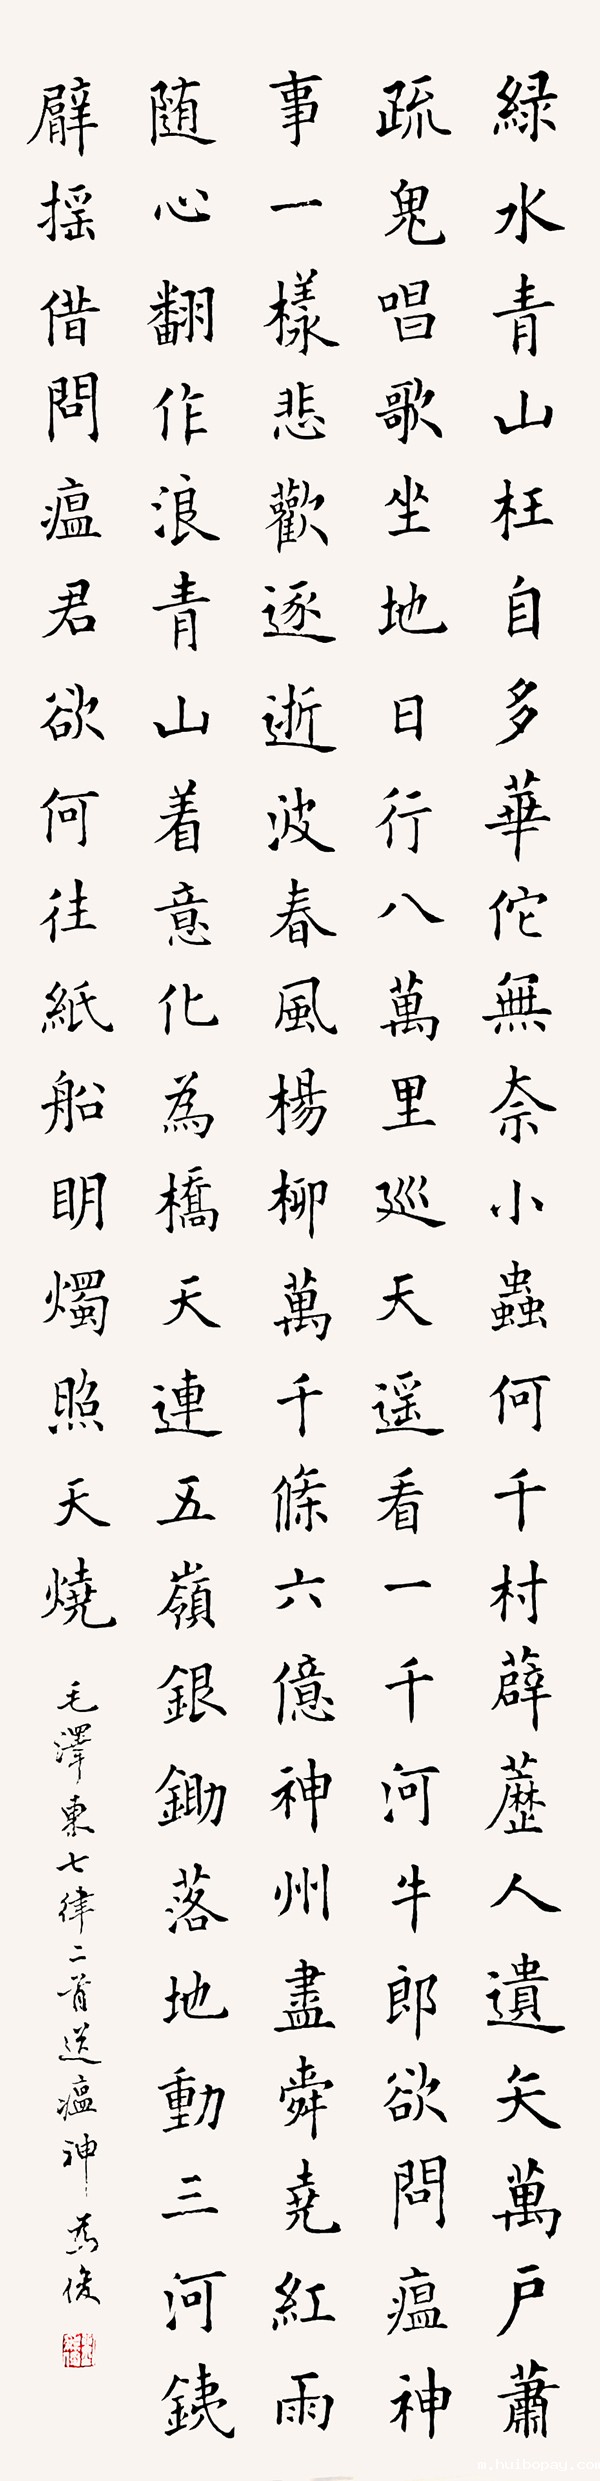 緑水青山枉自多華佗無奈小蟲何千村薜藶人遺矢萬戶蕭
疏鬼唱歌坐地日行八萬里巡天遥看一千河牛郎欲問瘟神
事一樣悲歡逐逝波春風楊柳萬千條六億神州盡舜堯紅雨
随心翻作浪青山着意化為橋天連五嶺銀鋤落地動三河銕
臂摇借問瘟君欲何往紙船明燭照天燒
毛澤東七律二首送瘟神 俊
m.huibopay.com